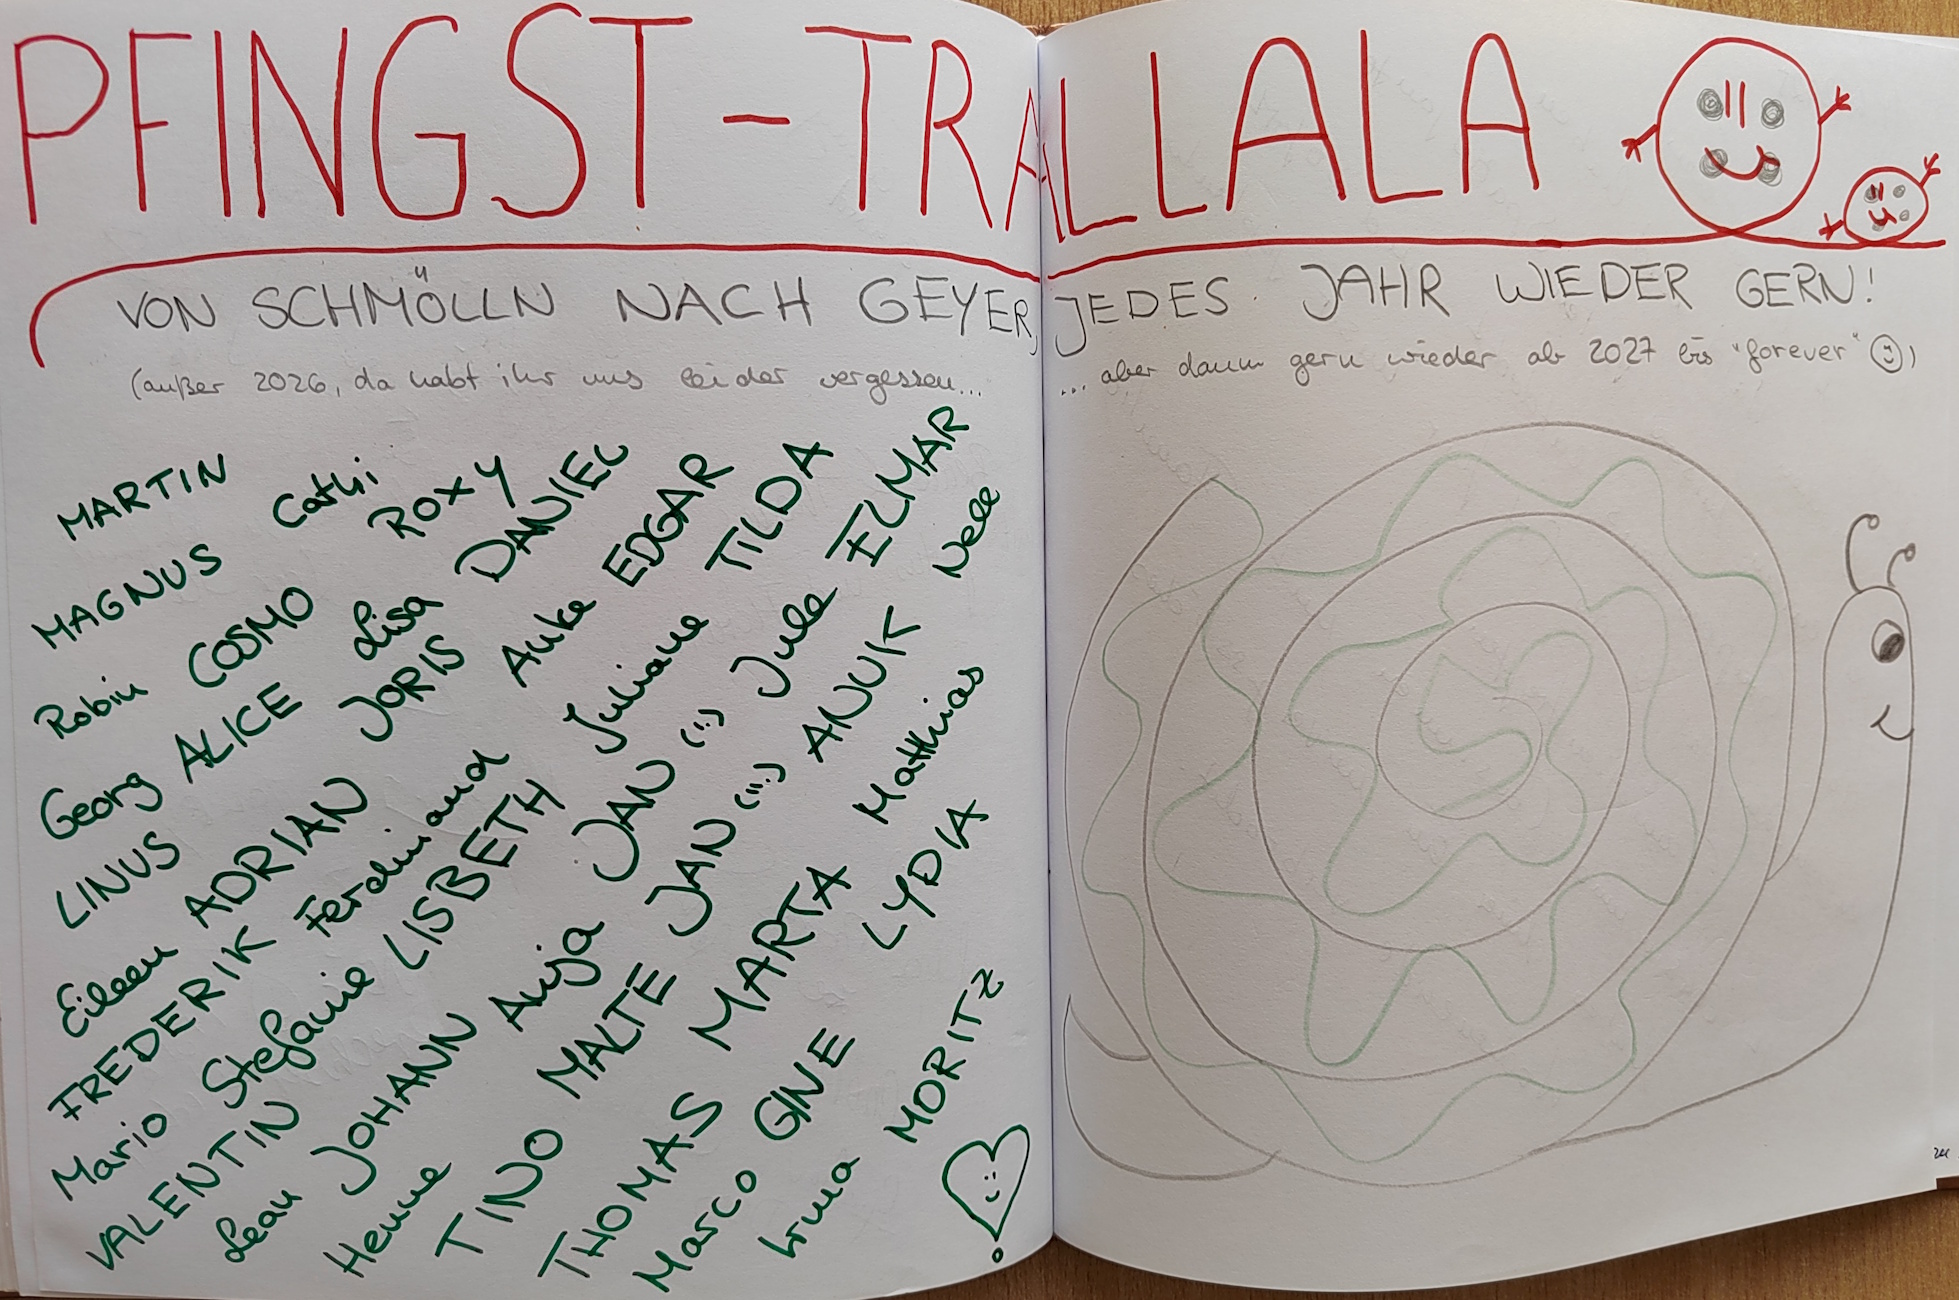 PFINGST-TRALLALA
VON SCHMÖLLN NACH GEYER, JEDES JAHR WIEDER GERN!
(außer 2026, da habt ihr uns leider vergessen... ... aber dann gern wieder ab 2027 bis "forever" ☺)
MARTIN
MAGNUS Cathi
Robin COSMO ROXY
Georg ALICE Lisa DANIEL
LINUS JORIS Anke EDGAR
Eileen ADRIAN Juliane TILDA
FREDERIK Ferdinand JAN (:) Jule ELMAR
Mario Stefanie LISBETH JAN (::) ANUK Nele
VALENTIN Anja Matthias
Lean JOHANN MALTE MARTA LYDIA
Henne TINO GINE
THOMAS MORITZ
Marco Irma